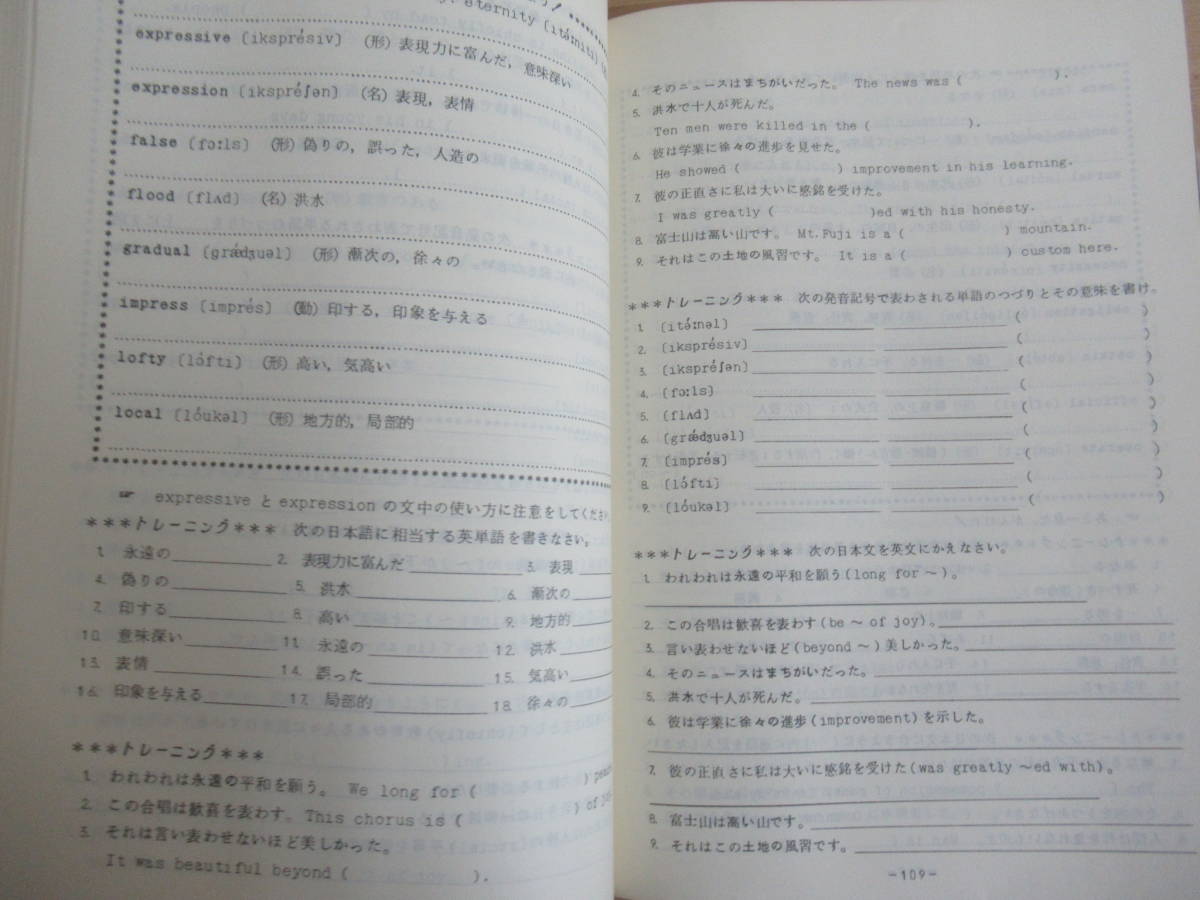 eternity (itə́ːniti)
expressive (iksprésiv) (形) 表現力に富んだ, 意味深い
expression (ikspréʃən) (名) 表現, 表情
false (fɔːls) (形) 偽りの, 誤った, 人造の
flood (flʌd) (名) 洪水
gradual (grǽdʒuəl) (形) 漸次の, 徐々の
impress (imprés) (動) 印する, 印象を与える
lofty (lɔ́fti) (形) 高い, 気高い
local (lóukəl) (形) 地方的, 局部的
☞ expressive と expression の文中の使い方に注意をしてください。
***トレーニング*** 次の日本語に相当する英単語を書きなさい。
1. 永遠の 2. 表現力に富んだ 3. 表現
4. 偽りの 5. 洪水 6. 漸次の
7. 印する 8. 高い 9. 地方的
10. 意味深い 11. 永遠の 12. 洪水
13. 表情 14. 誤った 15. 気高い
16. 印象を与える 17. 局部的 18. 徐々の
***トレーニング***
1. われわれは永遠の平和を願う。 We long for ( )
2. この合唱は歓喜を表わす。 This chorus is ( ) of
3. それは言い表わせないほど美しかった。
It was beautiful beyond ( ).
4. そのニュースはまちがいだった。 The news was ( ).
5. 洪水で十人が死んだ。
Ten men were killed in the ( ).
6. 彼は学業に徐々の進歩を見せた。
He showed ( ) improvement in his learning.
7. 彼の正直さに私は大いに感銘を受けた。
I was greatly ( )ed with his honesty.
8. 富士山は高い山です。 Mt.Fuji is a ( ) mountain.
9. それはこの土地の風習です。 It is a ( ) custom here.
***トレーニング*** 次の発音記号で表わされる単語のつづりとその意味を書け。
1. (itə́ːnəl) ( )
2. (iksprésiv) ( )
3. (ikspréʃən) ( )
4. (fɔːls) ( )
5. (flʌd) ( )
6. (grǽdʒuəl) ( )
7. (imprés) ( )
8. (lɔ́fti) ( )
9. (lóukəl) ( )
***トレーニング*** 次の日本文を英文にかえなさい。
1. われわれは永遠の平和を願う(long for ～)。
2. この合唱は歓喜を表わす(be ～ of joy)。
3. 言い表わせないほど(beyond ～)美しかった。
4. そのニュースはまちがいだった。
5. 洪水で十人が死んだ。
6. 彼は学業に徐々の進歩(improvement)を示した。
7. 彼の正直さに私は大いに感銘を受けた(was greatly ～ed with)。
8. 富士山は高い山です。
9. それはこの土地の風習です。
-109-